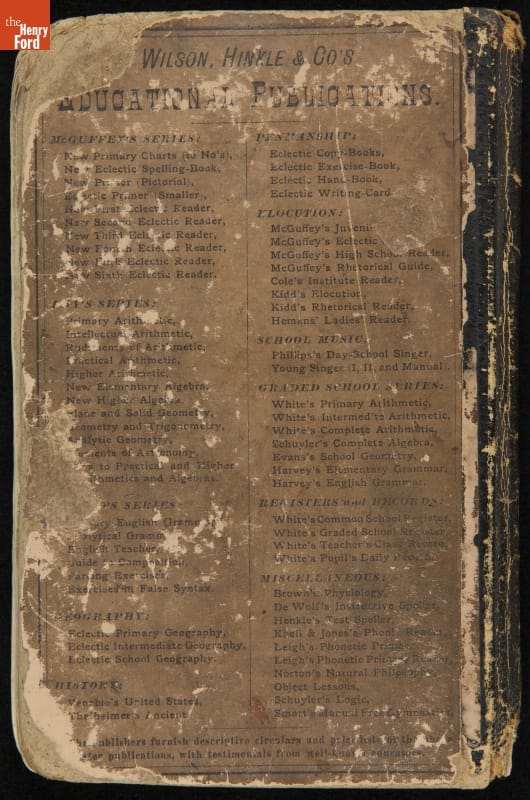 the
Henry
Ford
WILSON, HINKLE & CO'S
EDUCATIONAL PUBLICATIONS.
McGUFFEY'S SERIES:
New Primary Charts (10 No's),
New Eclectic Spelling-Book,
New Primer (Pictorial),
Eclectic Primer (Smaller),
New First Eclectic Reader,
New Second Eclectic Reader,
New Third Eclectic Reader,
New Fourth Eclectic Reader,
New Fifth Eclectic Reader,
New Sixth Eclectic Reader.
SERIES:
Primary Arithmetic,
Intellectual Arithmetic,
Rudiments of Arithmetic,
Practical Arithmetic,
Higher Arithmetic,
New Elementary Algebra,
New Higher Algebra,
Plane and Solid Geometry,
Geometry and Trigonometry,
Analytic Geometry,
Elements of Astronomy,
to Practical and Higher
Arithmetics and Algebras.
SERIES:
English Gramm
Analytical Gramm
English Teacher,
Guide to Composition,
Parsing Exercises,
Exercises in False Syntax.
GEOGRAPHY:
Eclectic Primary Geography,
Eclectic Intermediate Geography,
Eclectic School Geography.
HISTORY:
Venable's United States,
Thalheimer's Ancient
PENMANSHIP:
Eclectic Copy-Books,
Eclectic Exercise-Book,
Eclectic Hand-Book,
Eclectic Writing-Card
ELOCUTION:
McGuffey's Juveni
McGuffey's Eclectic
McGuffey's High School Reader,
McGuffey's Rhetorical Guide,
Cole's Institute Reader,
Kidd's Elocution,
Kidd's Rhetorical Reader,
Hemans' Ladies' Reader.
SCHOOL MUSIC:
Phillips's Day-School Singer,
Young Singer (I, II, and Manual).
GRADED SCHOOL SERIES:
White's Primary Arithmetic,
White's Intermed'te Arithmetic,
White's Complete Arithmetic,
Schuyler's Complete Algebra,
Evans's School Geometry,
Harvey's Elementary Grammar,
Harvey's English Grammar.
REGISTERS and RECORDS:
White's Common School Register,
White's Graded School Register,
White's Teacher's Class Record,
White's Pupil's Daily Record.
MISCELLANEOUS:
Brown's Physiology,
De Wolf's Instructive Speller,
Henkle's Test Speller,
Knell & Jones's Phonic Reader,
Leigh's Phonetic Primer,
Leigh's Phonetic Primary Reader,
Norton's Natural Philosophy,
Object Lessons,
Schuyler's Logic,
Smart's Manual Free Gymnastics.
The publishers furnish descriptive circulars and price lists of the
publications, with testimonials from well-known educators.